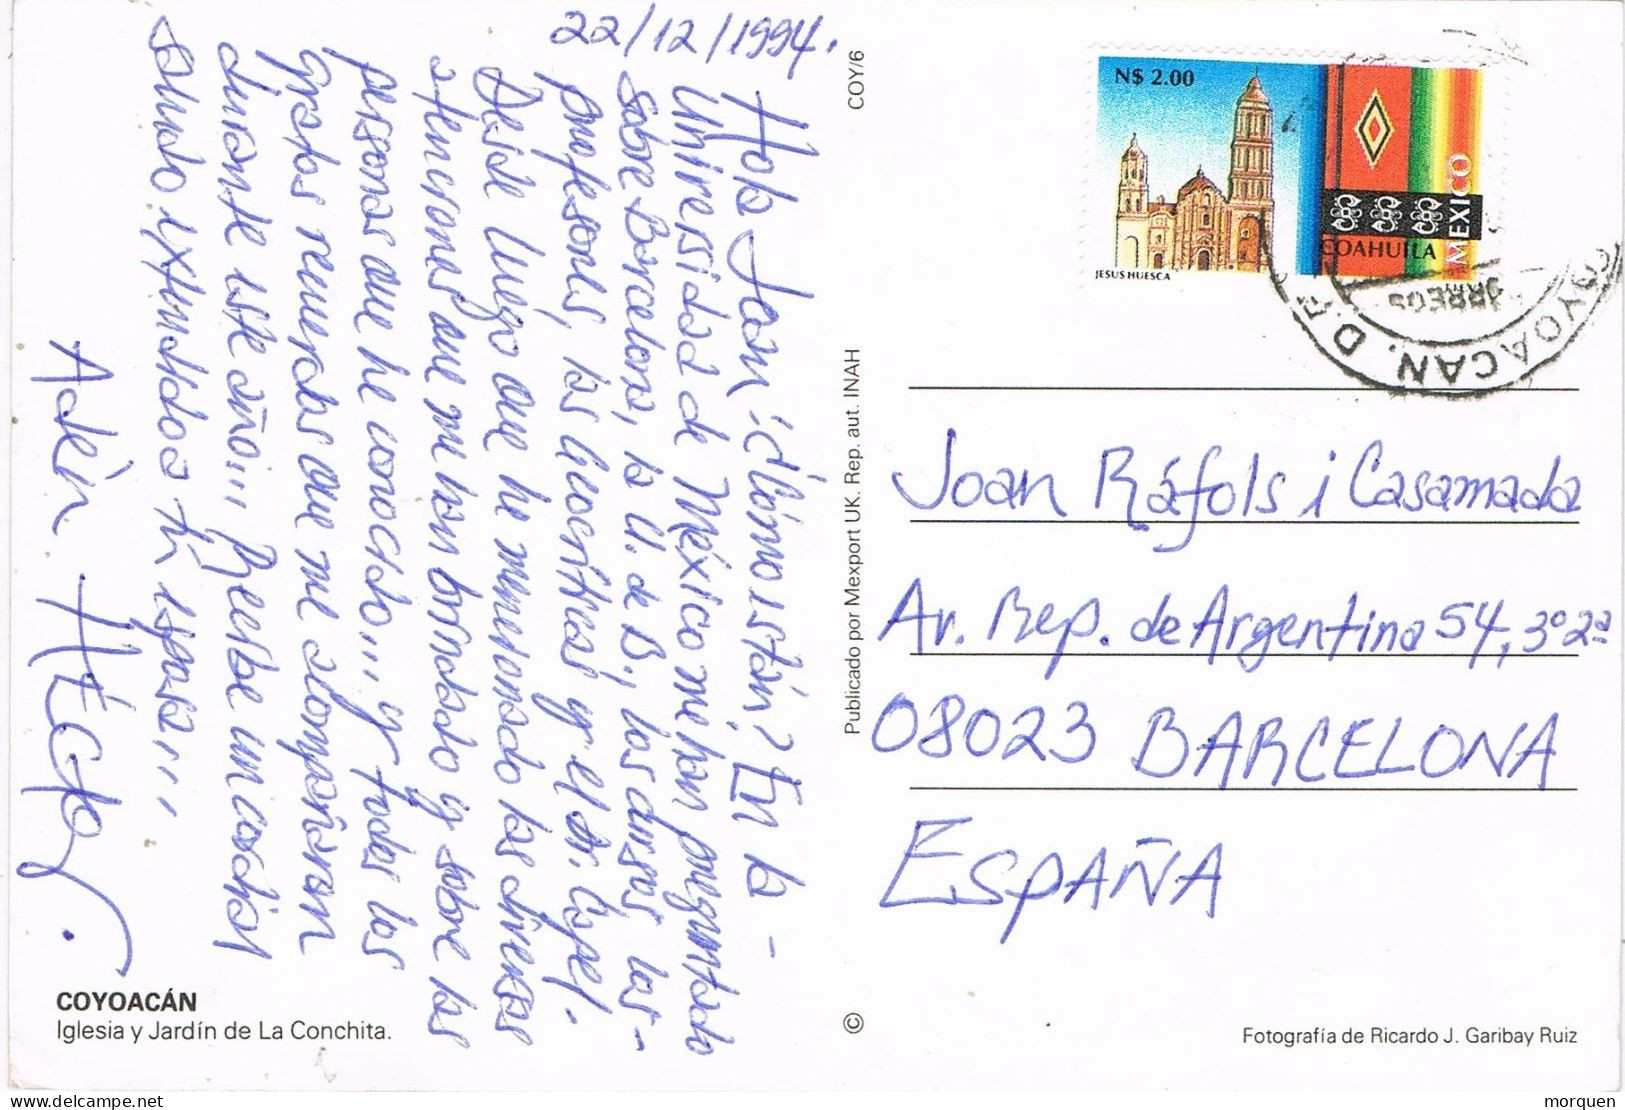 22/12/1994.
Hola Joan: ¿Cómo están? En la-
Universidad de México me han preguntado
sobre Barcelona, la U. de B., los cursos, los-
profesores, las Geocríticas y el Dr. Capel.
Desde luego que he mencionado las diversas
atenciones que me han brindado y sobre las
personas que he conocido... y todos los
gratos recuerdos que me acompañaron
durante este año... Recibe un cordial
saludo extendido a tu esposa...
Atén. HÉctor.
COYOACÁN
Iglesia y Jardín de La Conchita.
COY/6
Publicado por Mexport UK. Rep. aut. INAH
©
N$ 2.00
JESUS HUESCA
COAHUILA
MEXICO
COYOACAN, D.F.
Joan Ráfols i Casamada
Av. Rep. de Argentina 54, 3º 2ª
08023 BARCELONA
ESPAÑA
Fotografía de Ricardo J. Garibay Ruiz
morquen